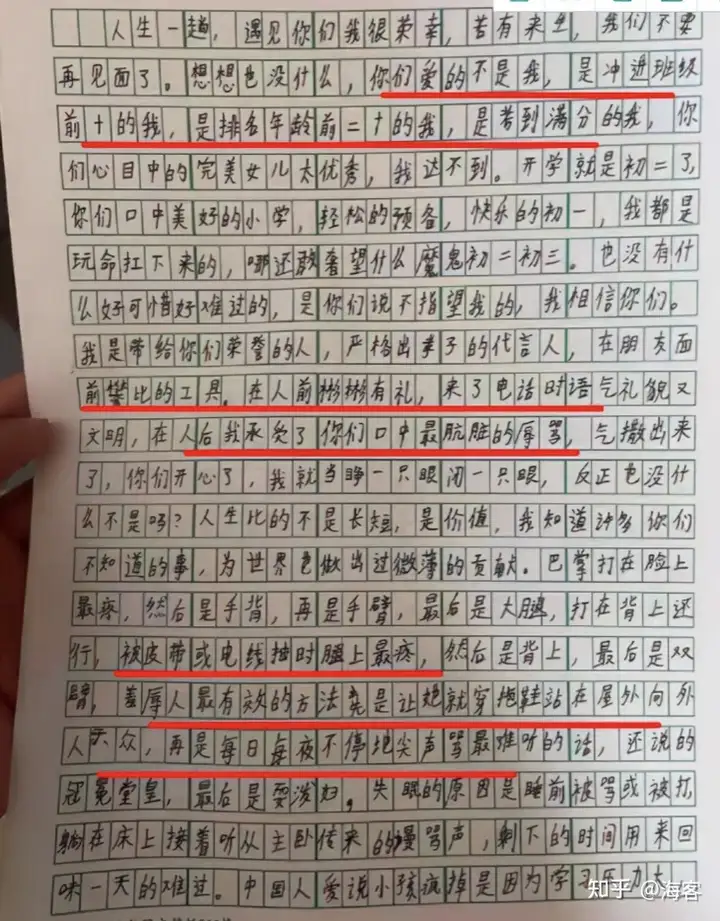 人生一趟，遇见你们我很荣幸，若有来生，我们不要
再见面了。想想也没什么，你们爱的不是我，是冲进班级
前十的我，是排名年龄前二十的我，是考到满分的我，你
们心目中的完美女儿太优秀，我达不到。开学就是初二了，
你们口中美好的小学，轻松的预备，快乐的初一，我都是
玩命扛下来的，哪还敢奢望什么魔鬼初二初三。也没有什
么好可惜好难过的，是你们说不指望我的，我相信你们。
我是带给你们荣誉的人，严格出孝子的代言人，在朋友面
前攀比的工具。在人前彬彬有礼，来了电话时语气礼貌又
文明，在人后我承受了你们口中最肮脏的辱骂，气撒出来
了，你们开心了，我就当睁一只眼闭一只眼，反正也没什
么不是吗？人生比的不是长短，是价值，我知道许多你们
不知道的事，为世界也做出过微薄的贡献。巴掌打在脸上
最疼，然后是手背，再是手臂，最后是大腿，打在背上还
行，被皮带或电线抽时腿上最疼，然后是背上，最后是双
臂，羞辱人最有效的方法竟是让她就穿拖鞋站在屋外向外
人示众，再是每日每夜不停地尖声骂最难听的话，还说的
冠冕堂皇，最后是耍泼妇。失眠的原因是睡前被骂或被打，
躺在床上接着听从主卧传来的谩骂声，剩下的时间用来回
味一天的难过。中国人爱说小孩疯掉是因为学习压力大
知乎 @海客